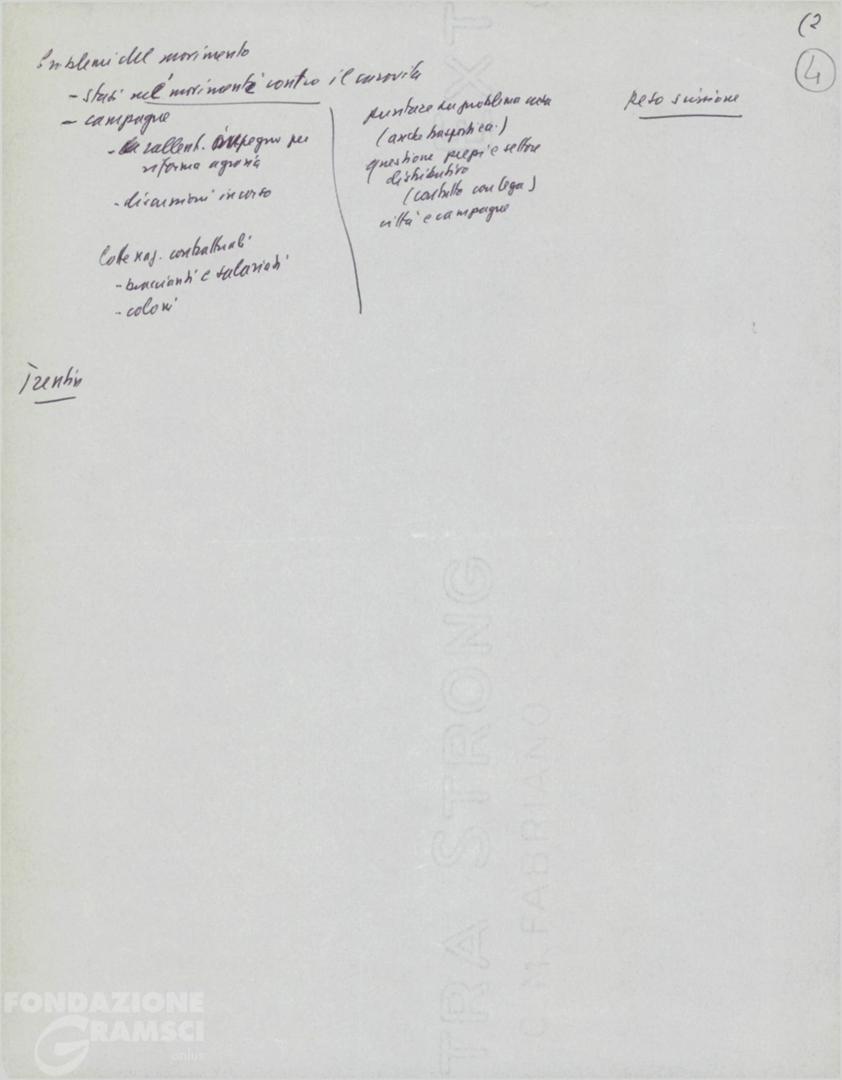 (2
4
Problemi del movimento
- stasi nel movimento contro il carovita
- campagne
- rallent. impegno per
riforma agraria
- discussioni in corso
contrattuali
- braccianti e salariati
- coloni
puntare su problema casa
(anche trasporti ca.)
questione prezzi e settore
distributivo
(contatto con lega)
città e campagne
Peso scissione
Trentin
EXTRA STRONG
C.M. FABRIANO
FONDAZIONE
GRAMSCI
onlus